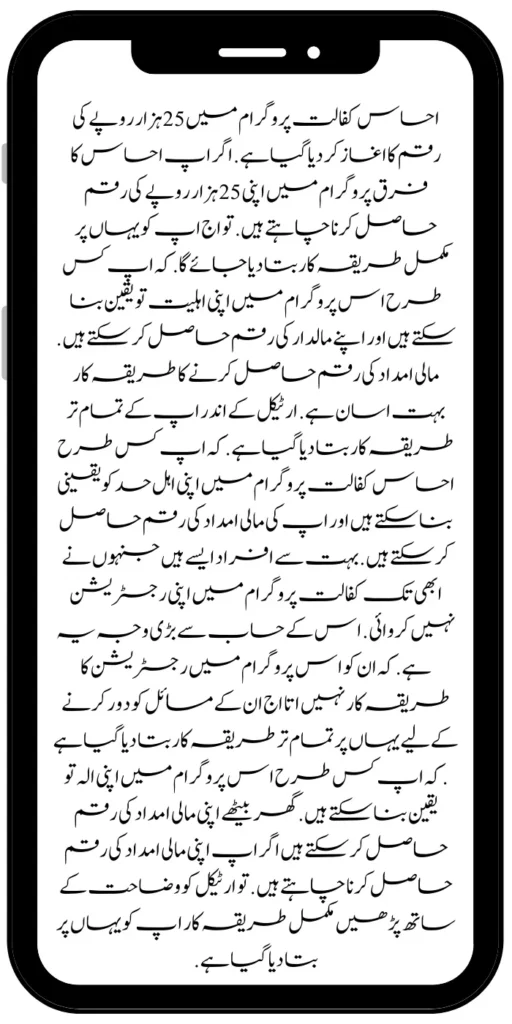 احساس کفالت پروگرام میں 25 ہزار روپے کی
رقم کا اغاز کر دیا گیا ہے. اگر اپ احساس کا
فرق پروگرام میں اپنی 25 ہزار روپے کی رقم
حاصل کرنا چاہتے ہیں. تو اج اپ کو یہاں پر
مکمل طریقہ کار بتا دیا جائے گا. کہ اپ کس
طرح اس پروگرام میں اپنی اہلیت تو یقین بنا
سکتے ہیں اور اپنے مالدار کی رقم حاصل کر سکتے ہیں.
مالی امداد کی رقم حاصل کرنے کا طریقہ کار
بہت اسان ہے. ارٹیکل کے اندر اپ کے تمام تر
طریقہ کار بتا دیا گیا ہے. کہ اپ کس طرح
احساس کفالت پروگرام میں اپنی اہل حد کو یقینی
بنا سکتے ہیں اور اپ کی مالی امداد کی رقم حاصل
کر سکتے ہیں. بہت سے افراد ایسے ہیں جنہوں نے
ابھی تک کفالت پروگرام میں اپنی رجسٹریشن
نہیں کروائی. اس کے حساب سے بڑی وجہ یہ
ہے. کہ ان کو اس پروگرام میں رجسٹریشن کا
طریقہ کار نہیں اتا اج ان کے مسائل کو دور کرنے
کے لیے یہاں پر تمام تر طریقہ کار بتا دیا گیا ہے
. کہ اپ کس طرح اس پروگرام میں اپنی الہ تو
یقین بنا سکتے ہیں. گھر بیٹھے اپنی مالی امداد کی رقم
حاصل کر سکتے ہیں اگر اپ اپنی مالی امداد کی رقم
حاصل کرنا چاہتے ہیں. تو ارٹیکل کو وضاحت کے
ساتھ پڑھیں مکمل طریقہ کار اپ کو یہاں پر
بتا دیا گیا ہے.